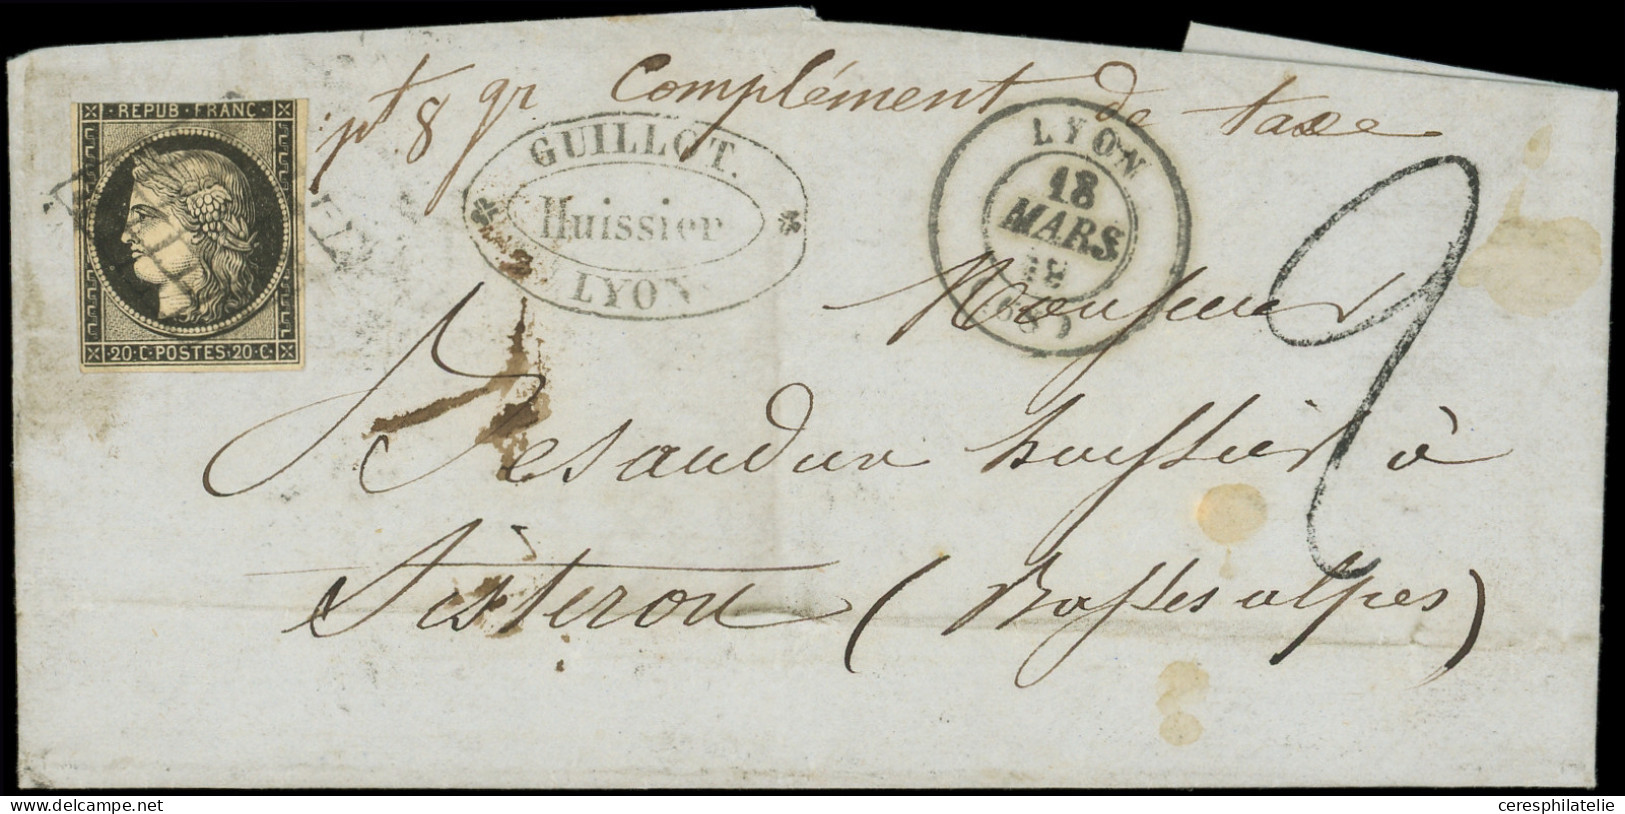 REPUB·FRANÇ
20·C·POSTES·20·C·
pt 8 gr Complément de taxe
GUILLOT.
Huissier
LYON
LYON
18
MARS
(68)
2
Monsieur
huissier à
Sisteron (Basses alpes)
ceresphilatelie
www.delcampe.net